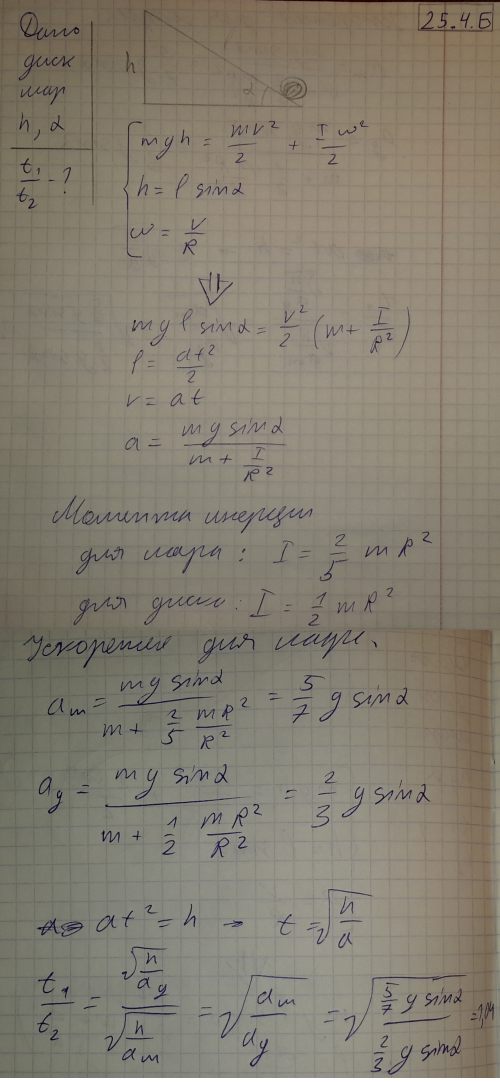 25.4.Б
Дано
диск
шар
h, α
t₁/t₂ - ?
h
α
mgh = mv²/2 + Iω²/2
h = l sinα
ω = v/R
⇓
mg l sinα = v²/2 (m + I/R²)
l = at²/2
v = at
a = mg sinα / (m + I/R²)
Моменты инерции
для шара: I = 2/5 mR²
для диска: I = 1/2 mR²
Ускорение для шара.
aш = mg sinα / (m + 2/5 mR²/R²) = 5/7 g sinα
aд = mg sinα / (m + 1/2 mR²/R²) = 2/3 g sinα
at² = h → t = √(h/a)
t₁/t₂ = √(h/aд) / √(h/aш) = √(aш/aд) = √(5/7 g sinα / 2/3 g sinα) = 1,04